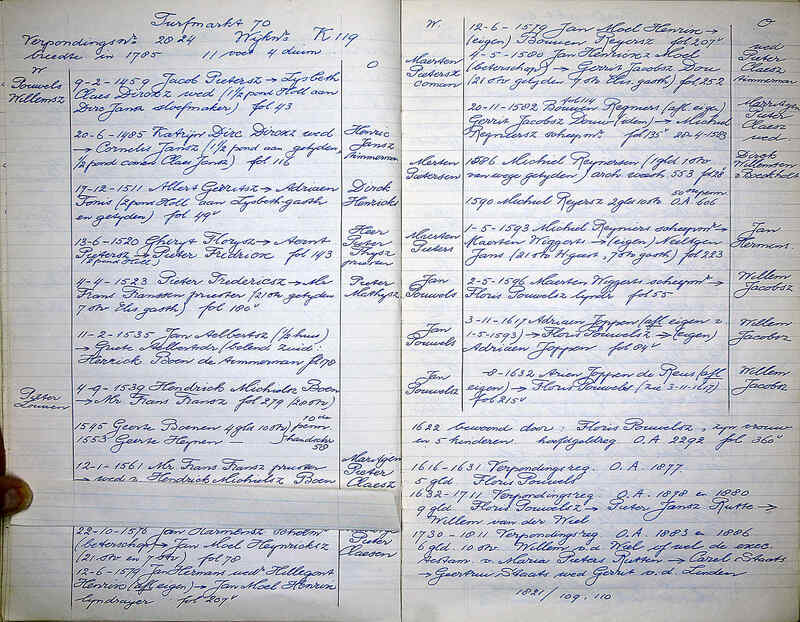 Turfmarkt 70
Verpondingsno. 2824 Wijkno. K 119
breedte in 1785 11 voet 4 duim.
W O
Pouwels
Willemsz
9-2-1459 Jacob Pietersz → Lysbeth
Claes Dircxz wed (1½ pond Holl aan
Dirc Jansz stoefmaker) fol 43
20-6-1485 Katrijn Dirc Dircxz wed
→ Cornelis Jansz (1½ pond aan getyden,
½ pond coman Claes Jansz) fol 116
Henric
Jansz
timmerman
17-12-1511 Allert Gerritsz → Adriaen
Tonis (2 pond Holl aan Lysbeth-gasth
en getyden) fol 49v
Dirck
Henricks
13-6-1520 Gheryt Florysz → Aernt
Pietersz → Pieter Fredricx fol 143
12 pond Holl)
Heer
Pieter
Thysz
priester
4-4-1523 Pieter Fredericsz → Mr
Frans Fransen priester (21 str getyden
7 str Elis gasth) fol 180v
Pieter
Mathysz
11-2-1535 Jan Aelbertsz (½ huis)
→ Griete Aelbertsdr (belend zuid:
Henrick Boen de timmerman fl 178
Pieter
Louwen
4-9-1539 Hendrick Michielsz Boen
→ Mr Frans Fransz fol 279 (20 str)
1545 Geerte Boenen 4 gls 10 str) 10de penn
1553 Geerte Heynen — handschr 588
12-1-1561 Mr Frans Fransz priester
→ wed v Hendrick Michielsz Boen
Marritgen
Pieter
Claesz
22-10-1576 Jan Harmensz schelm
(beterschap) → Jan Moel Heynricksz
(21 str en 7 str) fol 78
Pieter
Claesen
12-6-1579 Jan Hermans wedr Hillegont
Henrix (afl eigen) → Jan Moel Henrix
lyndrayer fol 207v
W. O
12-6-1579 Jan Moel Henrix →
(eigen) Bouwen Reyersz fol 207v
wed
Pieter
Claesz
timmerman
Maerten
Pietersz
coman
4-5-1580 Jan Henricxz Moel
(beterschap) → Gerrit Jacobsz Dou
(21 str getyden 7 str Elis. gasth) fol 252
20-11-1582 Bouwen Reyniers (afl eigen)
fol 114
Gerrit Jacobsz Douw (eden) → Michiel
Reyniersz schepenr. fol 135v 28-4-1583
Marritgen
Pieter
Claesz
wed
Merten
Pietersen
1586 Michiel Reynersen (1 gld 1 str
van wege getyden) arch weesh 553 fol 28v
Dirck
Willemsen
v Boeckholt
1590 Michiel Reyersz 2 gls 10 str 50ste penn O.A. 606
Maerten
Pieters
1-5-1593 Michiel Reyniers schepenr →
Maerten Wiggerts → (eigen) Neeltgen
Jans (21 str H geest, 7 str gasth) fol 223
Jan
Hermens.
Jan
Pouwels
2-5-1596 Maerten Wiggerts schepenr →
Floris Pouwelsz lyndr fol 55
Willem
Jacobsz
Jan
Pouwels
3-11-1617 Adriaen Joppen (afl eigen v
1-5-1593) → Floris Pouwelsz → (eigen)
Adriaen Joppen fol 84v
Willem
Jacobsz
Jan
Pouwelsz
-8-1632 Arien Joppen de Reus (afl
eigen) → Floris Pouwels (zie 3-11-1617)
fol 215v
Willem
Jacobsz
1622 bewoond door: Floris Pouwelsz, zijn vrouw
en 5 kinderen hoofdgeldreg O.A 2292 fol. 360v
1616-1631 Verpondingsreg. O.A. 1877.
5 gld Floris Pouwels
1632-1711 Verpondingsreg O.A. 1878 en 1880
9 gld Floris Pouwelsz → Pieter Jansz Rutte →
Willem van der Wiel
1730-1811 Verpondingsreg. O.A. 1883 en 1886
6 gld 10 str Willem v.d. Wiel of wel de exec.
testam v. Maria Pieters Rutten → Carel Staats
→ Geertrui Staats wed Gerrit v.d. Linden
1821/109.110